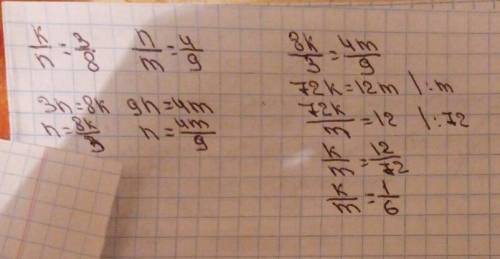 k/n = 3/8 n/m = 4/9
3n = 8k 9n = 4m
n = 8k/3 n = 4m/9
8k/3 = 4m/9
72k = 12m |:m
72k/m = 12 |:72
k/m = 12/72
k/m = 1/6